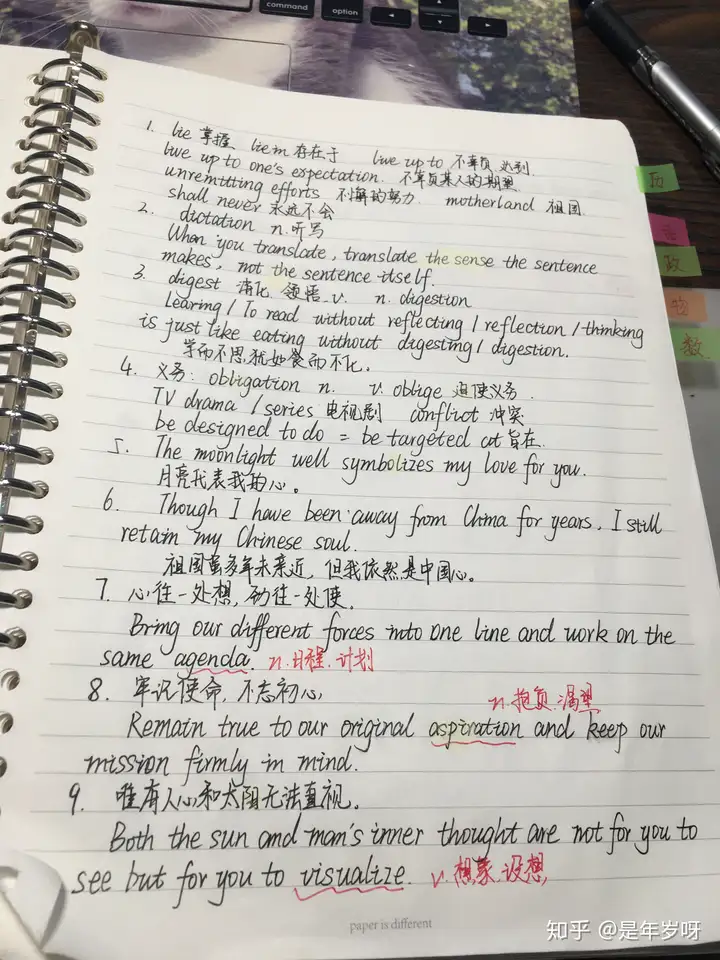 command option
1. lie 掌握 lie in 存在于 live up to 不辜负 达到.
live up to one's expectation. 不辜负某人的期望
unremitting efforts 不懈的努力. motherland 祖国.
shall never 永远不会
2. dictation n.听写
When you translate, translate the sense the sentence
makes, not the sentence itself.
3. digest 消化. 领悟.v. n. digestion
Learing / To read without reflecting / reflection / thinking
is just like eating without digesting / digestion.
学而不思犹如食而不化。
4. 义务: obligation n. v. oblige 迫使义务.
TV drama / series 电视剧 conflict 冲突
be designed to do = be targeted at 旨在.
5. The moonlight well symbolizes my love for you.
月亮代表我的心。
6. Though I have been away from China for years, I still
retain my Chinese soul.
祖国虽多年未亲近, 但我依然是中国心。
7. 心往一处想, 劲往一处使.
Bring our different forces into one line and work on the
same agenda. n.日程. 计划
8. 牢记使命, 不忘初心
n.抱负.渴望
Remain true to our original aspiration and keep our
mission firmly in mind.
9. 唯有人心和太阳无法直视。
Both the sun and man's inner thought are not for you to
see but for you to visualize. v.想象.设想,
历
政
物
数
paper is different
知乎 @是年岁呀